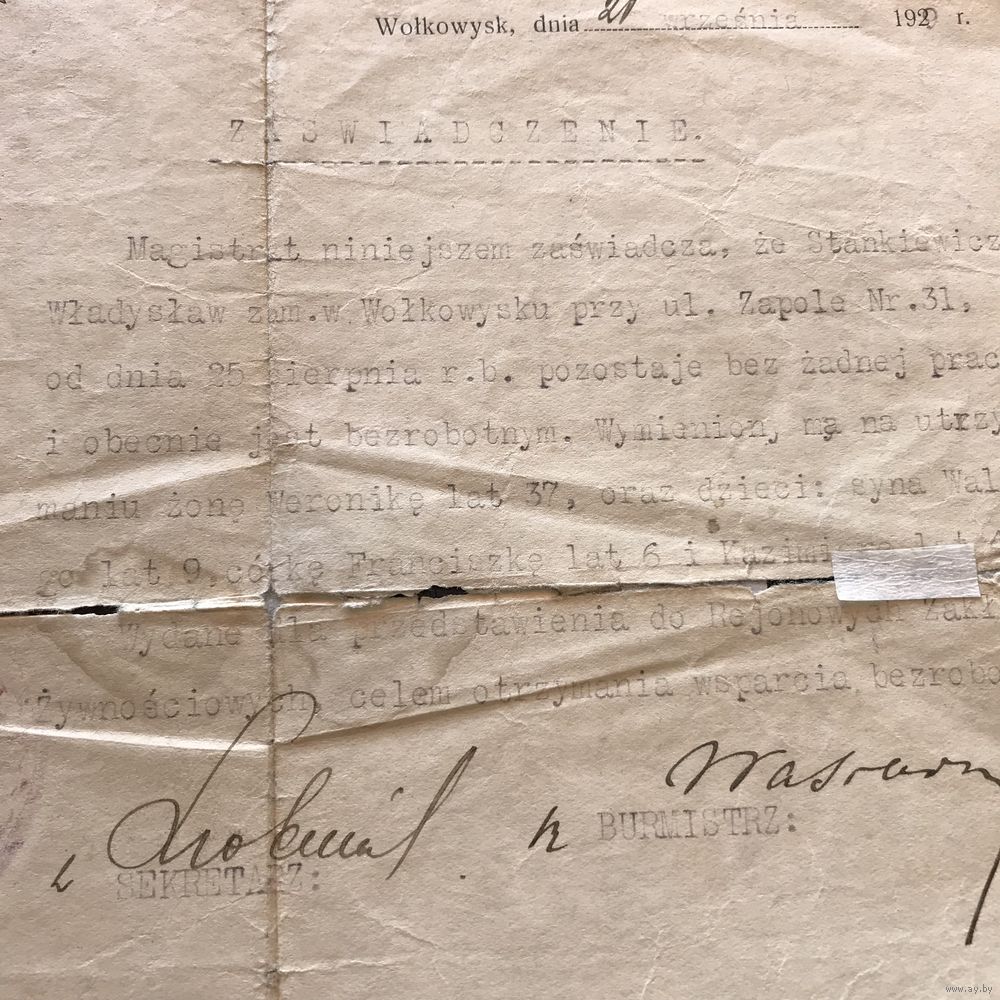 Wołkowysk, dnia 21 września 192 r.
ZAŚWIADCZENIE.
Magistrat niniejszem zaświadcza, że Stankiewicz
Władysław zam.w Wołkowysku przy ul. Zapole Nr.31,
od dnia 25 sierpnia r.b. pozostaje bez żadnej prac
i obecnie jest bezrobotnym. Wymieniony ma na utrzy
maniu żonę Weronikę lat 37, oraz dzieci: syna Wal
go lat 9, córkę Franciszkę lat 6 i
Wydane dla przedstawienia do Rejonowych Zakł
żywnościowych, celem otrzymania wsparcia bezrobo
BURMISTRZ:
SEKRETARZ:
www.ay.by